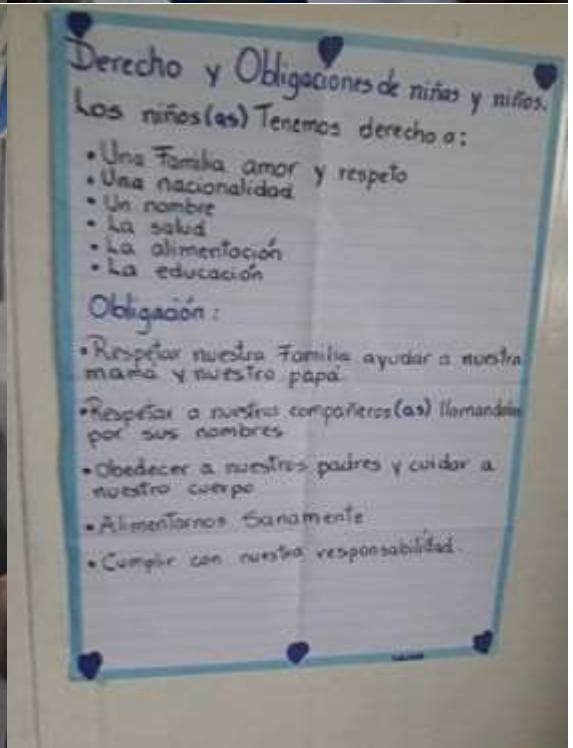 Derecho y Obligaciones de niñas y niños.
Los niños(as) Tenemos derecho a:
• Una Familia amor y respeto
• Una nacionalidad
• Un nombre
• La salud
• La alimentación
• La educación
Obligación:
• Respetar nuestra Familia ayudar a nuestra
mamá y nuestro papá.
• Respetar a nuestros compañeros(as) llamandolos
por sus nombres
• Obedecer a nuestros padres y cuidar a
nuestro cuerpo
• Alimentarnos Sanamente
• Cumplir con nuestra responsabilidad.